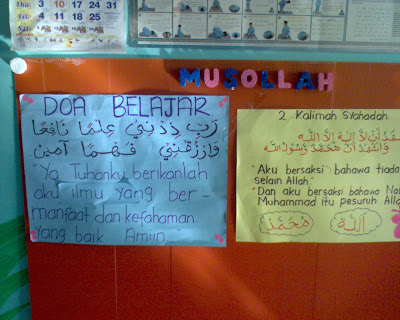 Thu: 3 10 17 24 31
Fri: 4 11 18 25
Sat: 5 12 19 26
MUSOLLAH
DOA BELAJAR
رَبِّ زِدْنِيْ عِلْمًا نَافِعًا
وَارْزُقْنِيْ فَهْمًا آمين
"Ya Tuhanku berikanlah
aku ilmu yang ber-
manfaat dan kefahaman
yang baik. Amiin."
2 Kalimah Syahadah
أَشْهَدُ أَنْ لَا إِلٰهَ إِلَّا اللهُ
وَأَشْهَدُ أَنَّ مُحَمَّدًا رَسُوْلُ اللهِ
"Aku bersaksi bahawa tiada
selain Allah"
"Dan aku bersaksi bahawa Na
Muhammad itu pesuruh Alla
مُحَمَّد
الله